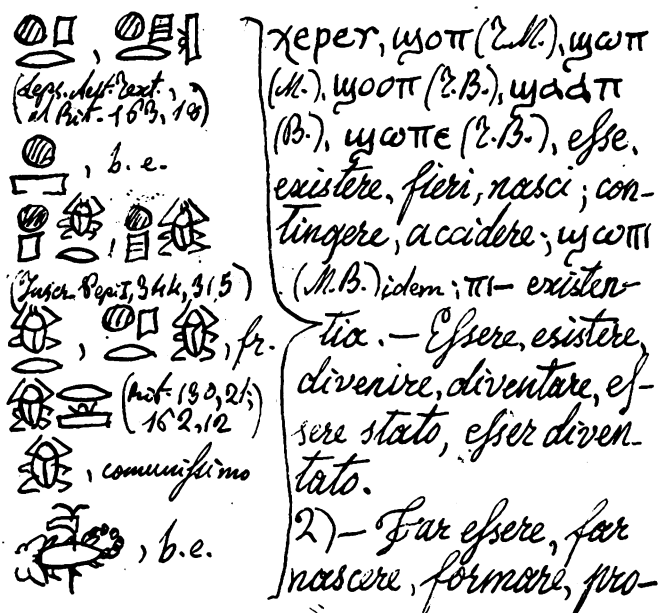 𓐍𓊪𓂋,
(Leps. Aelt. Text.,
al Rit. 163, 18)
, b.e.
(Inscr. Pepi I, 344, 315)
𓆣𓂋, 𓐍𓊪𓂋𓆣, fr.
(Rit. 130, 21;
162,12)
𓆣, comunissimo
, b.e.
χeper, ϣⲟⲡ (T.M.), ϣⲱⲡ
(M.), ϣⲟⲟⲡ (T.B.), ϣⲁⲁⲡ
(B.), ϣⲱⲡⲉ (T.B.), esse,
existere, fieri, nasci; con-
tingere, accidere; ϣⲱⲡⲓ
(M.B.) idem; ⲡⲓ– existen-
tia. – Essere, esistere,
divenire, diventare, es-
sere stato, esser diven-
tato.
2) – Far essere, far
nascere, formare, pro-